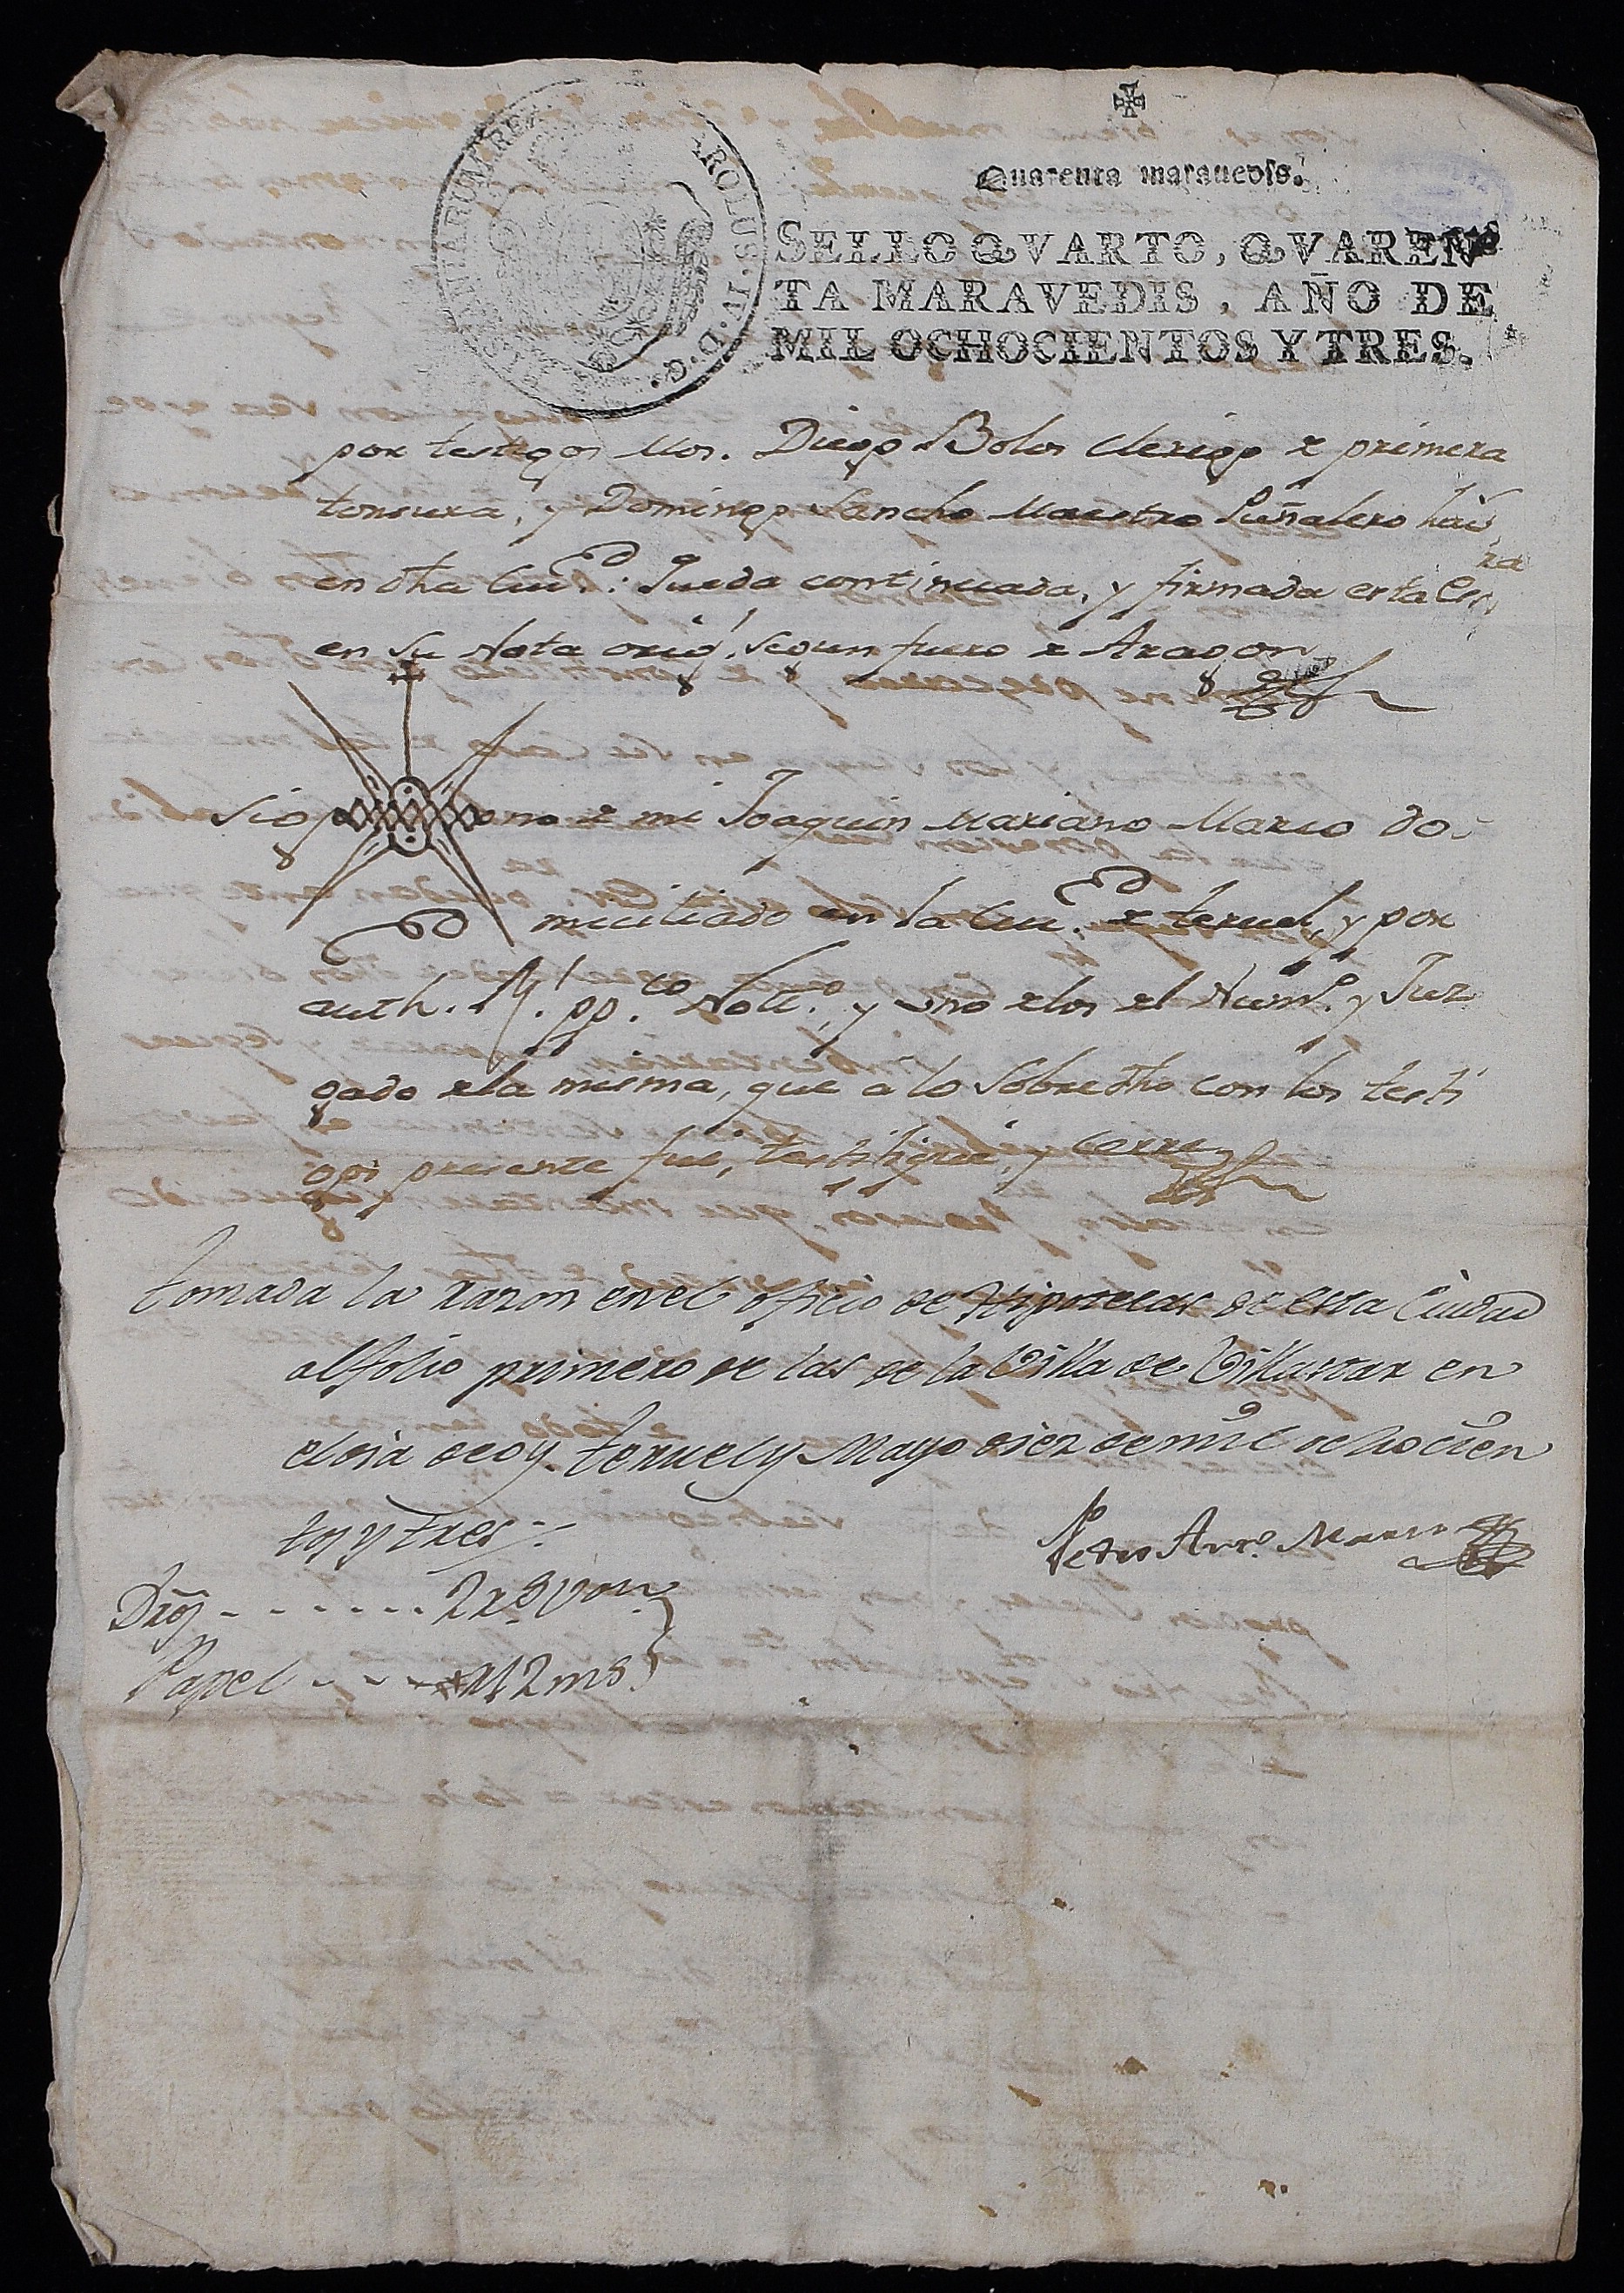 Quarenta maravedis.
CAROLUS . IV . D . G . HISPANIARUM . REX
SELLO QVARTO, QVAREN
TA MARAVEDIS, AÑO DE
MIL OCHOCIENTOS Y TRES.
por testigos Mos. Diego Bolos Clerigo de primera
tonsura, y Domingo Sancho Maestro Puñalero hãs
en dha Ciud: Queda continuada, y firmada esta Essra
en su Nota orig.l segun fuero de Aragon
Sig no de mi Joaquin Mariano Marco do-
miciliado en la Ciud. de teruel, y por
auth. Rl. pp.co Nott.o, y uno de los del Num.o y Juz
gado de la misma, que a lo sobredho con los testi
gos presente fui, testifiqué, y cerre
Tomada la razon en el oficio de Hipotecas de esta Ciudad
al folio primero de las de la Villa de Villastar en
el dia de oy. Teruel y Mayo diez de mil ochocien
tos y tres
Pedro Ant.o Marco
Drõs - - - - - - - 2 rs von
Papel - - - - 12 ms